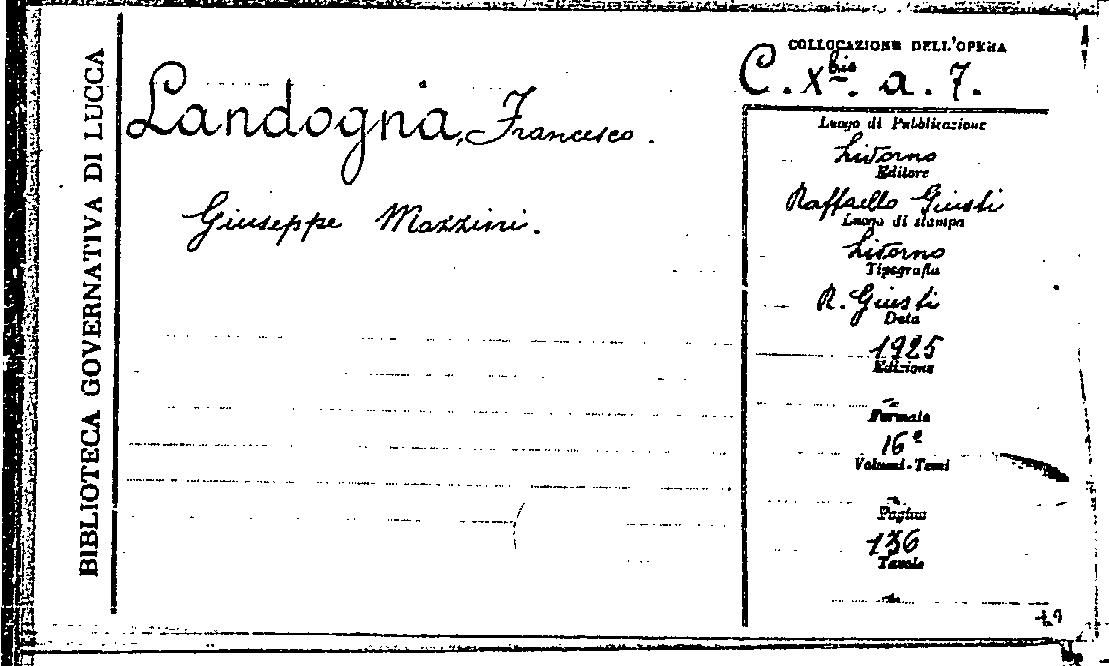 BIBLIOTECA GOVERNATIVA DI LUCCA
Landogna, Francesco.
Giuseppe Mazzini.
COLLOCAZIONE DELL'OPERA
C. X bis. a. 7.
Luogo di Pubblicazione
Livorno
Editore
Raffaello Giusti
Luogo di stampa
Livorno
Tipografia
R. Giusti
Data
1925
Edizione
Formato
16º
Volumi-Tomi
Pagine
136
Tavole